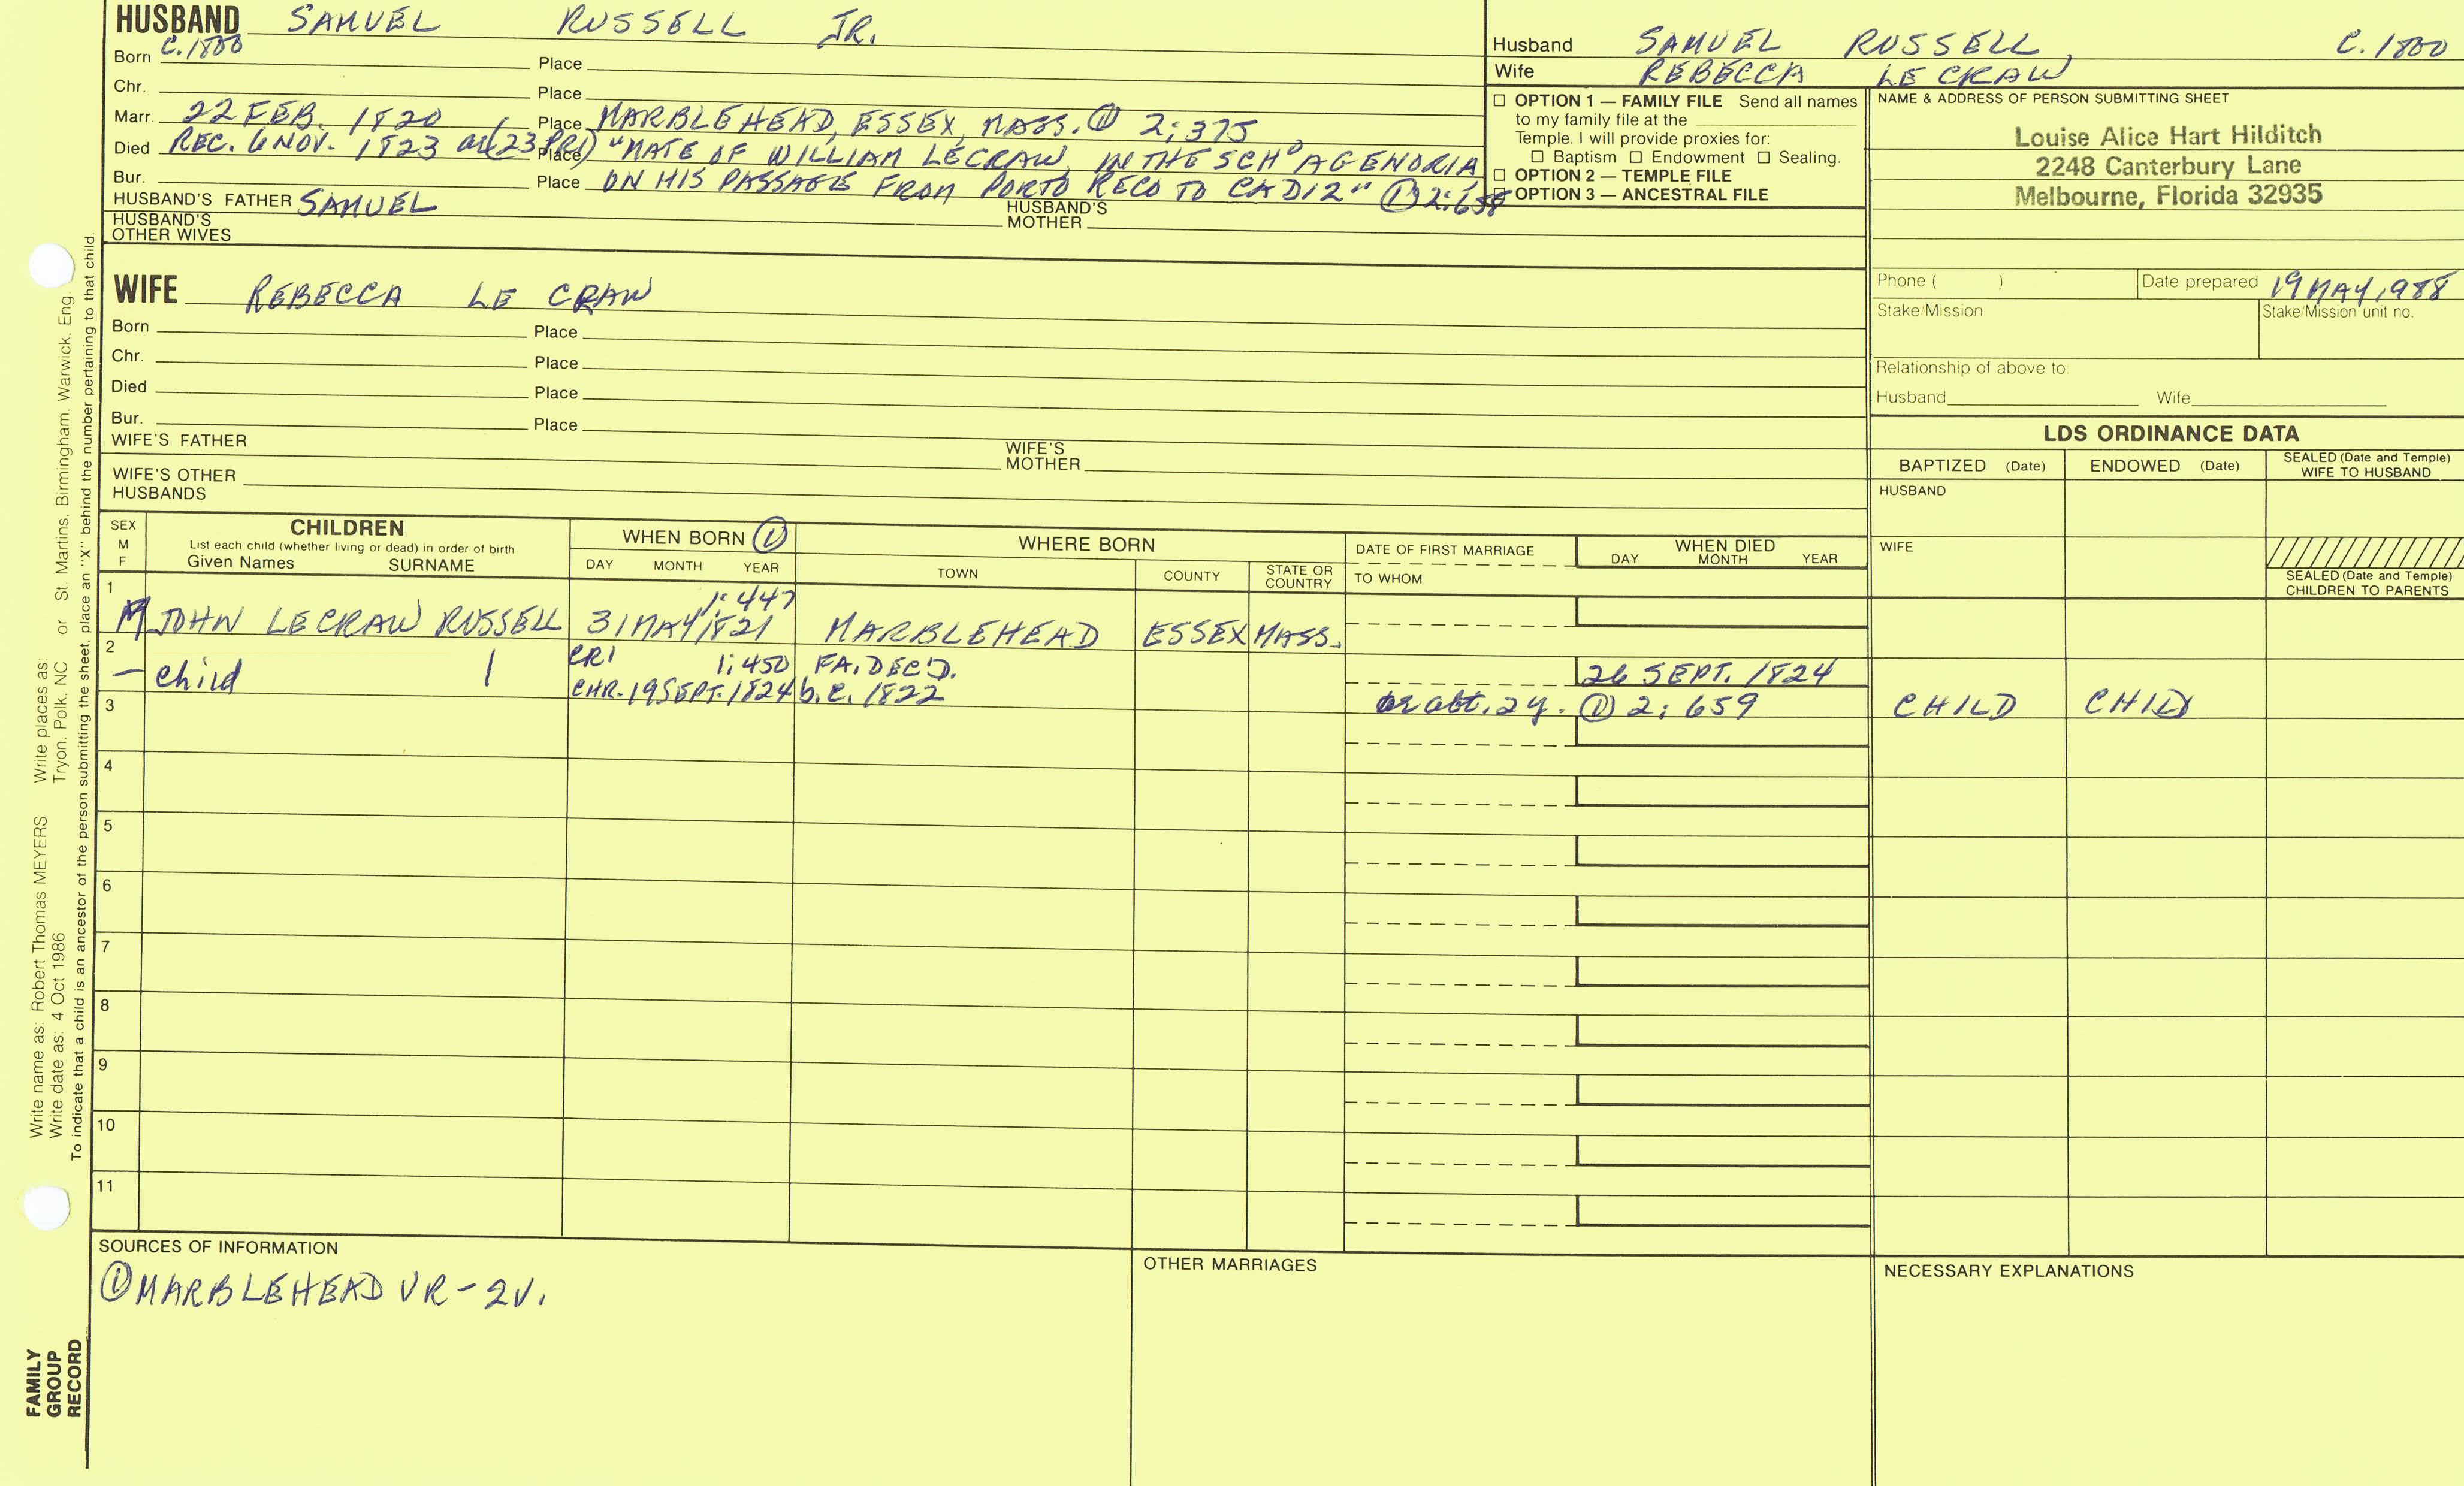 HUSBAND SAMUEL RUSSELL JR.
Born C.1800 Place
Chr. Place
Marr. 22 FEB. 1820 Place MARBLEHEAD, ESSEX, MASS. ① 2:375
Died REC. 6 NOV. 1823 (23 PR1) Place "MATE OF WILLIAM LECRAW, IN THE SCHº AGENORIA
Bur. Place ON HIS PASSAGE FROM PORTO RECO TO CADIZ" ① 2:658
HUSBAND'S FATHER SAMUEL HUSBAND'S MOTHER
HUSBAND'S OTHER WIVES
Husband SAMUEL RUSSELL, C.1800
Wife REBECCA LE CRAW
☐ OPTION 1 — FAMILY FILE Send all names
to my family file at the
Temple. I will provide proxies for:
☐ Baptism ☐ Endowment ☐ Sealing.
☐ OPTION 2 — TEMPLE FILE
☐ OPTION 3 — ANCESTRAL FILE
NAME & ADDRESS OF PERSON SUBMITTING SHEET
Louise Alice Hart Hilditch
2248 Canterbury Lane
Melbourne, Florida 32935
WIFE REBECCA LE CRAW
Born Place
Chr. Place
Died Place
Bur. Place
WIFE'S FATHER WIFE'S MOTHER
WIFE'S OTHER HUSBANDS
Phone ( ) Date prepared 19 MAY 1988
Stake/Mission Stake/Mission unit no.
Relationship of above to:
Husband Wife
LDS ORDINANCE DATA
BAPTIZED (Date) ENDOWED (Date) SEALED (Date and Temple) WIFE TO HUSBAND
HUSBAND
WIFE
SEALED (Date and Temple) CHILDREN TO PARENTS
SEX M F
CHILDREN
List each child (whether living or dead) in order of birth
Given Names SURNAME
WHEN BORN ①
DAY MONTH YEAR
WHERE BORN
TOWN COUNTY STATE OR COUNTRY
DATE OF FIRST MARRIAGE
TO WHOM
WHEN DIED
DAY MONTH YEAR
1 1:447
M JOHN LECRAW RUSSELL 31 MAY 1821 MARBLEHEAD ESSEX MASS.
2 CR1 1:450 FA. DEC'D. 26 SEPT. 1824
— child CHR. 19 SEPT. 1824 b.c. 1822
3 abt. 2y. ① 2:659 CHILD CHILD
4
5
6
7
8
9
10
11
SOURCES OF INFORMATION
① MARBLEHEAD VR - 2V.
OTHER MARRIAGES
NECESSARY EXPLANATIONS
Write name as: Robert Thomas MEYERS Write places as: Tryon, Polk, NC or St. Martins, Birmingham, Warwick, Eng.
Write date as: 4 Oct 1986
To indicate that a child is an ancestor of the person submitting the sheet, place an "X" behind the number pertaining to that child.
FAMILY
GROUP
RECORD